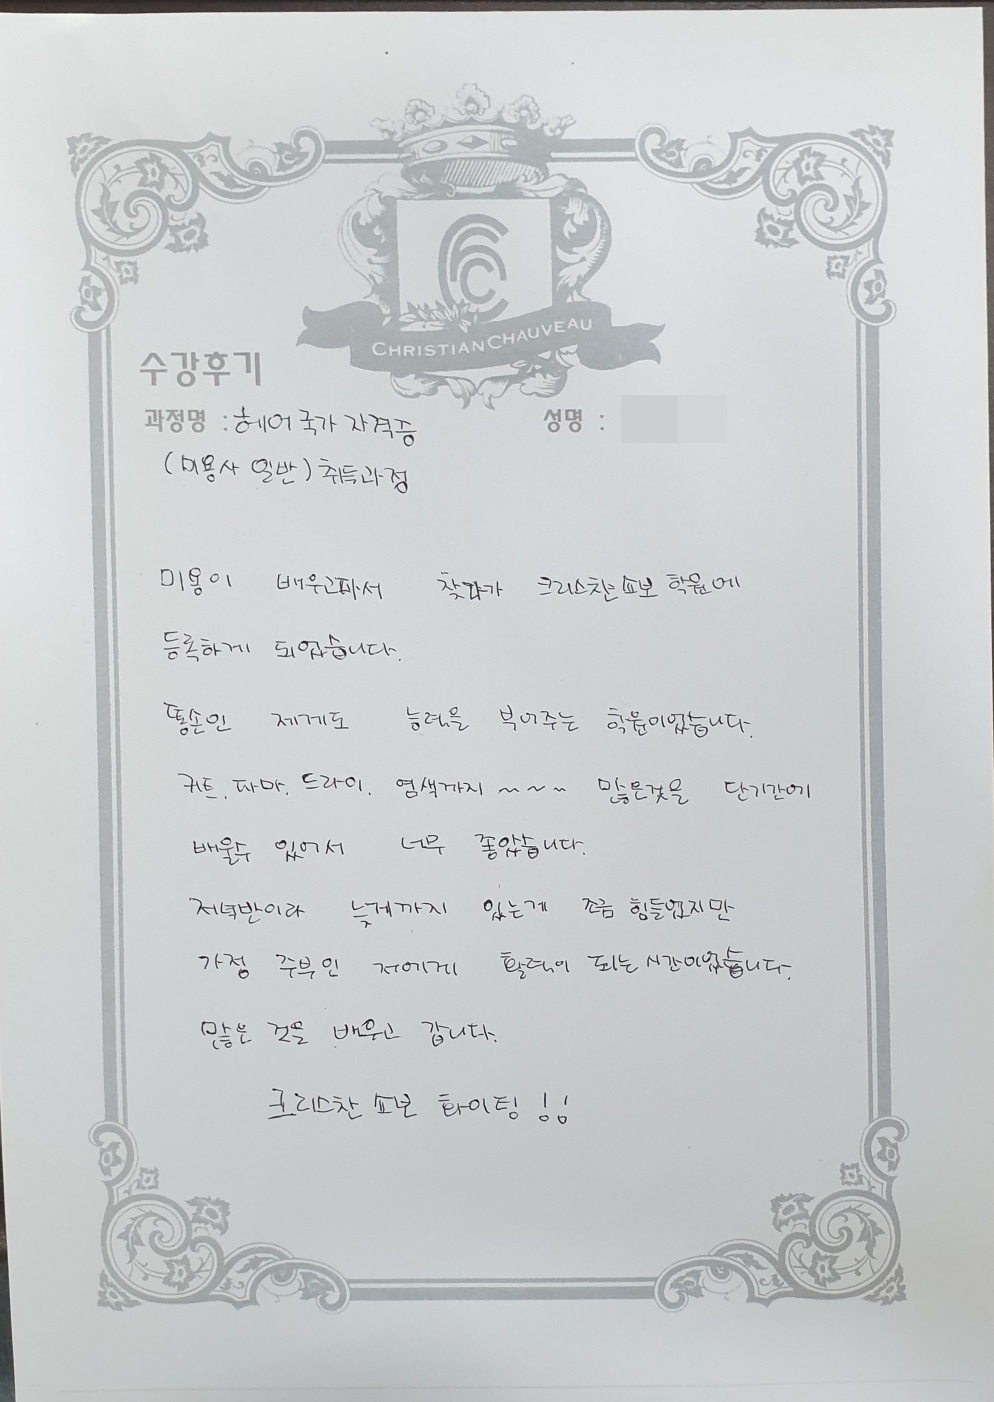 CHRISTIAN CHAUVEAU
수강후기
과정명 : 헤어 국가 자격증 성명 :
(미용사 일반) 취득과정
미용이 배우고파서 찾다가 크리스챤쇼보 학원에
등록하게 되었습니다.
똥손인 제게도 능력을 부어주는 학원이었습니다.
커트, 파마, 드라이, 염색까지 ~~~ 많은것을 단기간에
배울수 있어서 너무 좋았습니다.
저녁반이라 늦게까지 있는게 조금 힘들었지만
가정 주부인 저에게 활력이 되는 시간이었습니다.
많은 것을 배우고 갑니다.
크리스챤 쇼보 화이팅!!